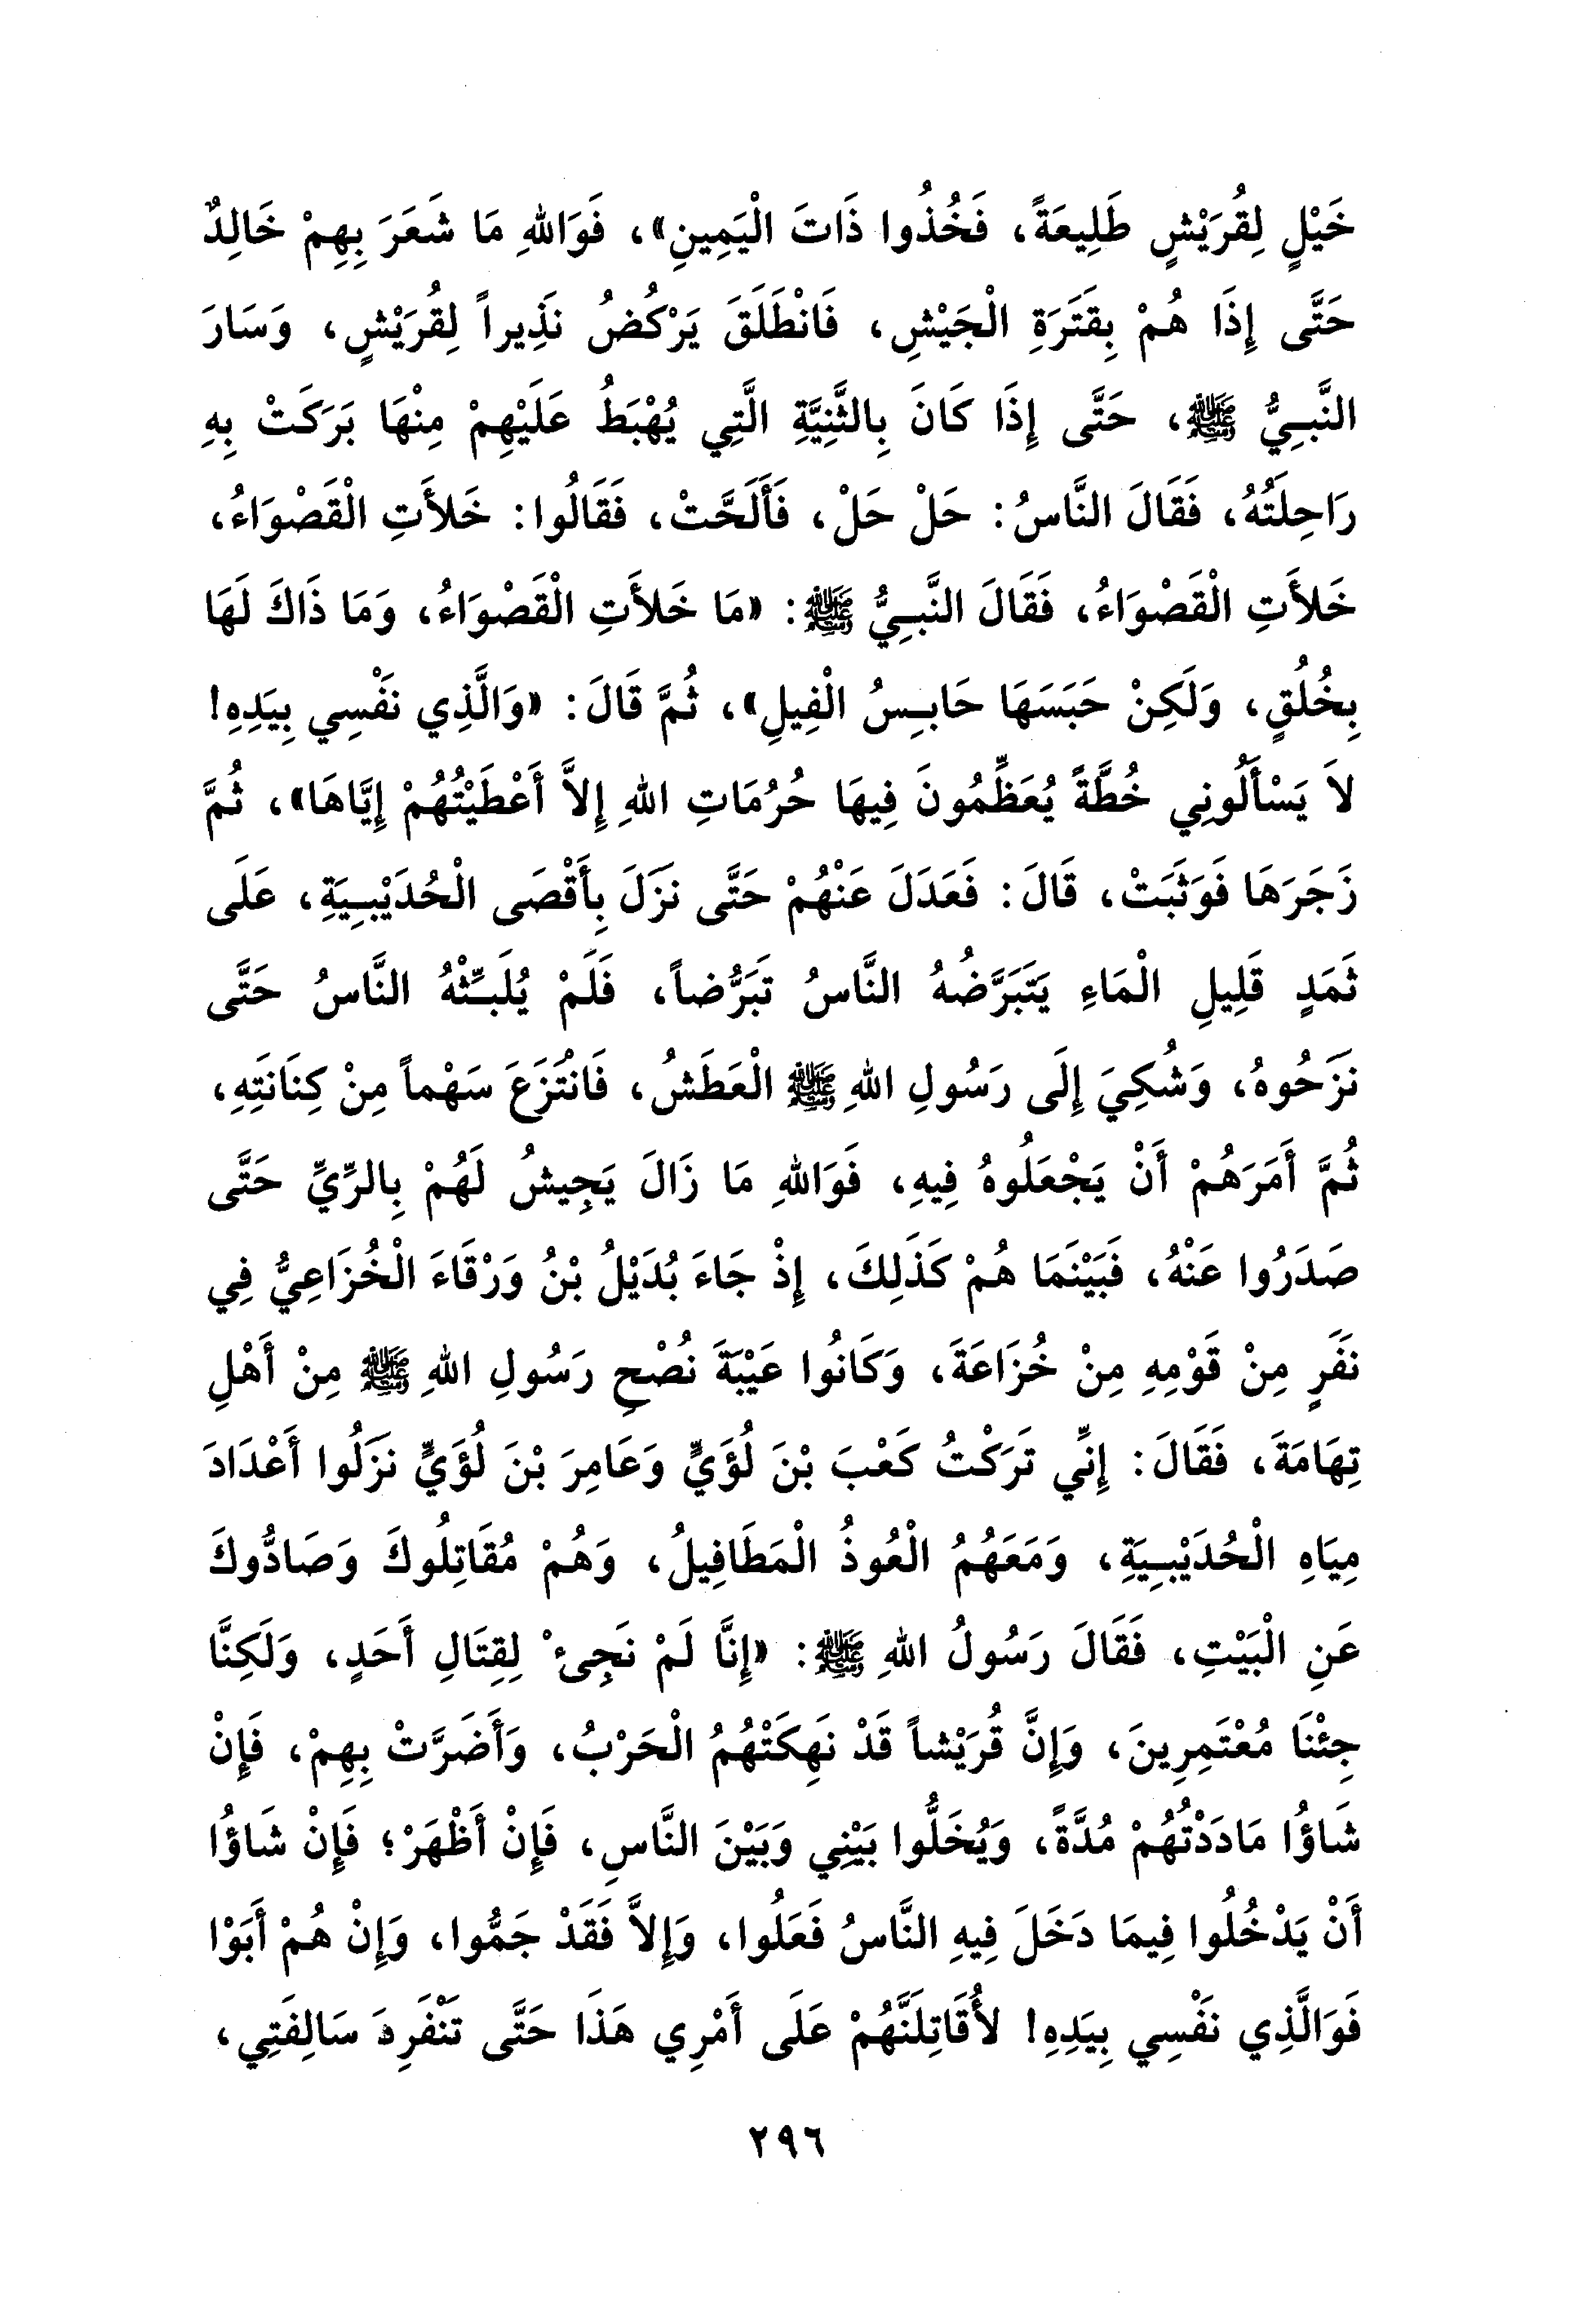 خَيْلٍ لِقُرَيْشٍ طَلِيعَةً، فَخُذُوا ذَاتَ الْيَمِينِ»، فَوَاللهِ مَا شَعَرَ بِهِمْ خَالِدٌ
حَتَّى إِذَا هُمْ بِقَتَرَةِ الْجَيْشِ، فَانْطَلَقَ يَرْكُضُ نَذِيراً لِقُرَيْشٍ، وَسَارَ
النَّبِيُّ ﷺ، حَتَّى إِذَا كَانَ بِالثَّنِيَّةِ الَّتِي يُهْبَطُ عَلَيْهِمْ مِنْهَا بَرَكَتْ بِهِ
رَاحِلَتُهُ، فَقَالَ النَّاسُ: حَلْ حَلْ، فَأَلَحَّتْ، فَقَالُوا: خَلأَتِ الْقَصْوَاءُ،
خَلأَتِ الْقَصْوَاءُ، فَقَالَ النَّبِيُّ ﷺ: «مَا خَلأَتِ الْقَصْوَاءُ، وَمَا ذَاكَ لَهَا
بِخُلُقٍ، وَلَكِنْ حَبَسَهَا حَابِسُ الْفِيلِ»، ثُمَّ قَالَ: «وَالَّذِي نَفْسِي بِيَدِهِ!
لاَ يَسْأَلُونِي خُطَّةً يُعَظِّمُونَ فِيهَا حُرُمَاتِ اللهِ إِلاَّ أَعْطَيْتُهُمْ إِيَّاهَا»، ثُمَّ
زَجَرَهَا فَوَثَبَتْ، قَالَ: فَعَدَلَ عَنْهُمْ حَتَّى نَزَلَ بِأَقْصَى الْحُدَيْبِيَةِ، عَلَى
ثَمَدٍ قَلِيلِ الْمَاءِ يَتَبَرَّضُهُ النَّاسُ تَبَرُّضاً، فَلَمْ يُلَبِّثْهُ النَّاسُ حَتَّى
نَزَحُوهُ، وَشُكِيَ إِلَى رَسُولِ اللهِ ﷺ الْعَطَشُ، فَانْتَزَعَ سَهْماً مِنْ كِنَانَتِهِ،
ثُمَّ أَمَرَهُمْ أَنْ يَجْعَلُوهُ فِيهِ، فَوَاللهِ مَا زَالَ يَجِيشُ لَهُمْ بِالرِّيِّ حَتَّى
صَدَرُوا عَنْهُ، فَبَيْنَمَا هُمْ كَذَلِكَ، إِذْ جَاءَ بُدَيْلُ بْنُ وَرْقَاءَ الْخُزَاعِيُّ فِي
نَفَرٍ مِنْ قَوْمِهِ مِنْ خُزَاعَةَ، وَكَانُوا عَيْبَةَ نُصْحِ رَسُولِ اللهِ ﷺ مِنْ أَهْلِ
تِهَامَةَ، فَقَالَ: إِنِّي تَرَكْتُ كَعْبَ بْنَ لُؤَيٍّ وَعَامِرَ بْنَ لُؤَيٍّ نَزَلُوا أَعْدَادَ
مِيَاهِ الْحُدَيْبِيَةِ، وَمَعَهُمُ الْعُوذُ الْمَطَافِيلُ، وَهُمْ مُقَاتِلُوكَ وَصَادُّوكَ
عَنِ الْبَيْتِ، فَقَالَ رَسُولُ اللهِ ﷺ: «إِنَّا لَمْ نَجِئْ لِقِتَالِ أَحَدٍ، وَلَكِنَّا
جِئْنَا مُعْتَمِرِينَ، وَإِنَّ قُرَيْشاً قَدْ نَهِكَتْهُمُ الْحَرْبُ، وَأَضَرَّتْ بِهِمْ، فَإِنْ
شَاؤُا مَادَدْتُهُمْ مُدَّةً، وَيُخَلُّوا بَيْنِي وَبَيْنَ النَّاسِ، فَإِنْ أَظْهَرْ؛ فَإِنْ شَاؤُا
أَنْ يَدْخُلُوا فِيمَا دَخَلَ فِيهِ النَّاسُ فَعَلُوا، وَإِلاَّ فَقَدْ جَمُّوا، وَإِنْ هُمْ أَبَوْا
فَوَالَّذِي نَفْسِي بِيَدِهِ! لأُقَاتِلَنَّهُمْ عَلَى أَمْرِي هَذَا حَتَّى تَنْفَرِدَ سَالِفَتِي،
٢٩٦